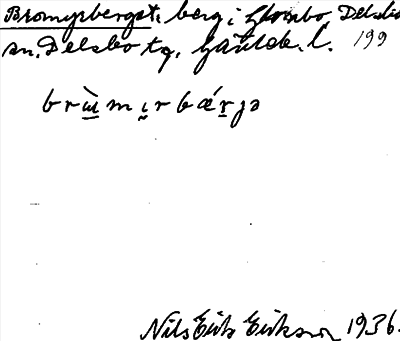 Bromyrberget, berg i Stömbo Delsbo
sn. Delsbo tg. Gävleb. l. 199
brɯ̀mı̣rbǽrjə
Nils Erik Eriksson 1936.